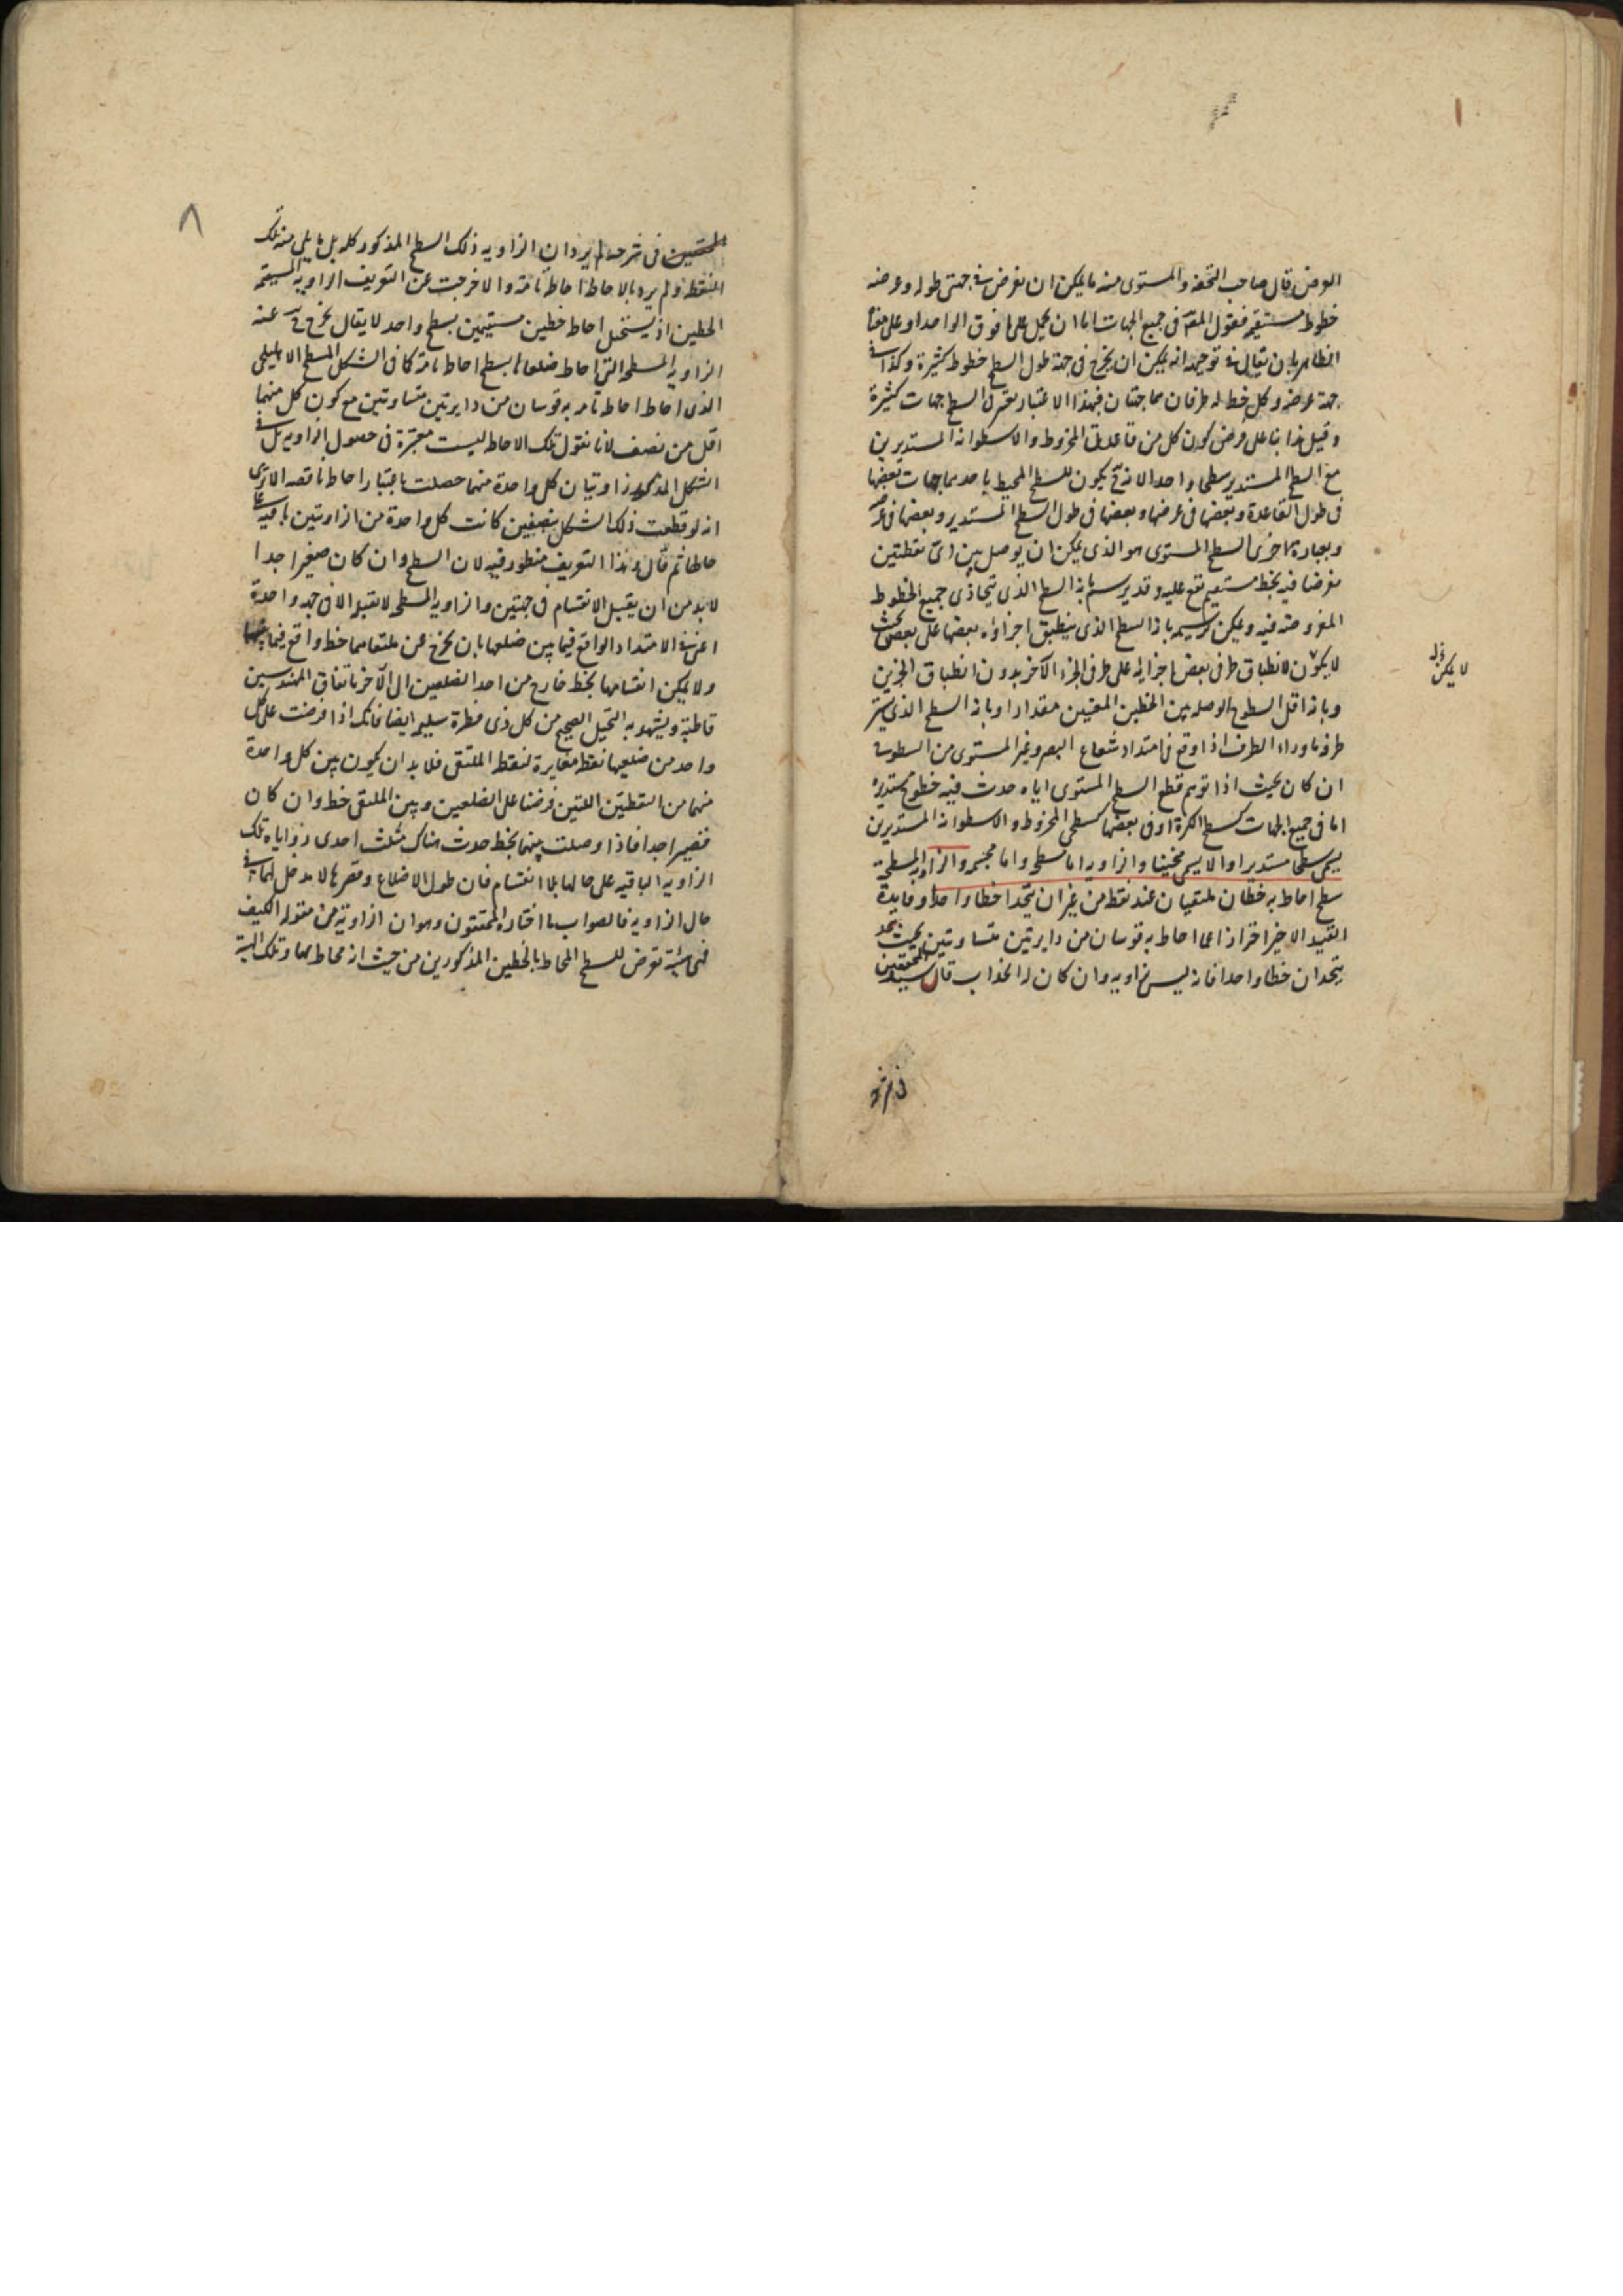 العرض وقال صاحب التحفة والمستوى منه ما يمكن ان نفرض فى جهتى طوله وعرضه
خطوط مستقيمة فقول المص فى جميع الجهات اما ان يحمل على ما فوق الواحد او على معناه
الظاهر بان يقال فى توجيهه انه يمكن ان يخرج فى جهة طول السطح خطوط كثيرة وكذا فى
جهة عرضه وكل خط له طرفان هما جهتان فبهذا الاعتبار تعرض السطح جهات كثيرة
وقيل هذا بناء على فرض كون كل من قاعدتى المخروط والاسطوانة المستديرين
مع السطح المستدير سطحا واحدا لانه ح يكون للسطح المحيط باحديهما جهات بعضها
فى طول القاعدة وبعضها فى عرضها وبعضها فى طول السطح المستدير وبعضها فى عرضه
وبعبارة اخرى السطح المستوى هو الذى يمكن ان يوصل بين اى نقطتين
نفرضا فيه بخط مستقيم يقع عليه وقد يرسم بانه السطح الذى يتحاذى جميع الخطوط
المفروضة فيه ويمكن ترسيمه بانه السطح الذى ينطبق اجزاؤه بعضها على بعض بحيث
لا يكون لانطباق طرفى بعض اجزائه على طرفى الجزء الآخر بدون انطباق الجزئين
لا يمكن
وبانه اقل السطوح الواصلة بين الخطين المعينين مقدارا وبانه السطح الذى يستر
طرفه ما وراء الطرف اذا وقع فى امتداد شعاع البصر وغير المستوى من السطوح
ان كان بحيث اذا توهم قطع السطح المستوى اياه حدث فيه خطوط مستديرة
اما فى جميع الجهات كسطح الكرة او فى بعضها كسطحى المخروط والاسطوانة المستديرين
يسمى سطحا مستديرا والا يسمى منحنيا والزاوية اما مسطحة واما مجسمة والزاوية المسطحة
سطح احاط به خطان ملتقيان عند نقطة من غير ان يتحدا خطا واحدا وفايدة
القيد الاخير احتراز عما احاط به قوسان من دايرتين متساويتين بحيث
يتحدان خطا واحدا فانه ليس زاوية وان كان له انحذاب قال سيد المحققين
فى شرحه
٨
المحققين فى شرحه لم يرد ان الزاوية ذلك السطح المذكور كله بل ما يلى منه تلك
النقطة ولم يرد بالاحاطة احاطة تامة والا خرجت عن التعريف الزاوية المستقيمة
الخطين اذ يستحيل احاطة خطين مستقيمين بسطح واحد لا يقال يخرج ح عنه
الزاوية المسطحة التى احاط ضلعاها بسطح احاطة تامة كما فى الشكل المسطح الاهليلجى
الذى احاط احاطة تامة به قوسان من دايرتين متساويتين مع كون كل منهما
اقل من نصف لانا نقول تلك الاحاطة ليست معتبرة فى حصول الزاوية بل فى
الشكل المذكور زاويتان كل واحدة منهما حصلت باعتبار احاطة ناقصة الا ترى
انه لو قطعت ذلك الشكل بنصفين كانت كل واحدة من الزاويتين باقية على
حالها ثم قال وهذا التعريف منظور فيه لان السطح وان كان صغيرا جدا
لابد من ان يقبل الانقسام فى جهتين والزاوية المسطحة لا تقبله الا فى جهة واحدة
اعنى فى الامتداد الواقع فيما بين ضلعيها بان يخرج من ملتقاهما خط واقع فيما بينهما
ولا يمكن انقسامها بخط خارج من احد الضلعين الى الآخر باتفاق المهندسين
قاطبة ويشهد به التخيل الصحيح من كل ذى فطرة سليمة ايضا فانك اذا فرضت على كل
واحد من ضلعيها نقطة مغايرة لنقطة الملتقى فلا بد ان يكون بين كل واحدة
منهما من النقطتين اللتين فرضنا على الضلعين وبين الملتقى خط وان كان
قصيرا جدا فاذا وصلت بينهما بخط حدث هناك مثلث احدى زواياه تلك
الزاوية الباقية على حالها بلا انقسام فان طول الاضلاع وقصرها لا مدخل لهما فى
حال الزاوية فالصواب ما اختاره المحققون وهو ان الزاوية من مقولة الكيف
فهى هيئة تعرض للسطح المحاط بالخطين المذكورين من حيث انه محاط بهما وتلك الهيئة